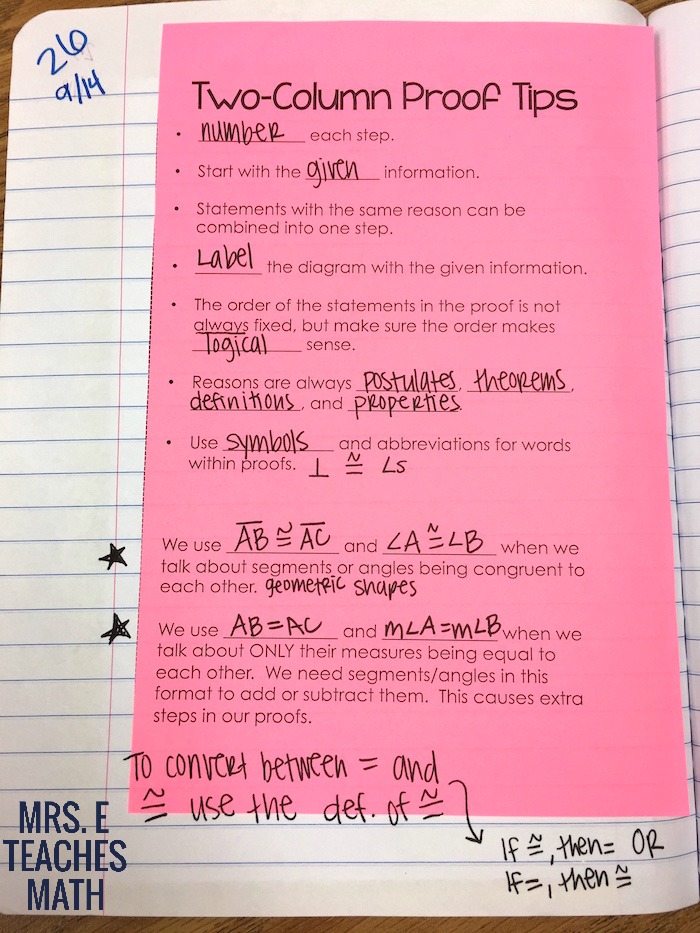 26
9/14
Two-Column Proof Tips
• number each step.
• Start with the given information.
• Statements with the same reason can be
combined into one step.
• Label the diagram with the given information.
• The order of the statements in the proof is not
always fixed, but make sure the order makes
logical sense.
• Reasons are always postulates, theorems,
definitions, and properties.
• Use symbols and abbreviations for words
within proofs. ⊥ ≅ ∠s
★ We use A̅B̅ ≅ A̅C̅ and ∠A ≅ ∠B when we
talk about segments or angles being congruent to
each other. geometric shapes
★ We use AB = AC and m∠A = m∠B when we
talk about ONLY their measures being equal to
each other. We need segments/angles in this
format to add or subtract them. This causes extra
steps in our proofs.
To convert between = and
≅ use the def. of ≅
If ≅, then = OR
If =, then ≅
MRS. E
TEACHES
MATH